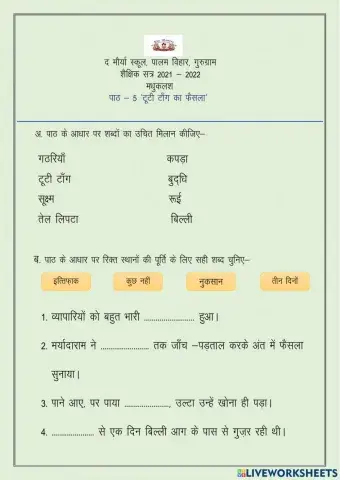 द मौर्या स्कूल, पालम विहार, गुरुग्राम
शैक्षिक सत्र 2021 – 2022
मधुकलश
पाठ – 5 'टूटी टाँग का फैसला'
अ. पाठ के आधार पर शब्दों का उचित मिलान कीजिए–
गठरियाँ कपड़ा
टूटी टाँग बुद्घि
सूक्ष्म रूई
तेल लिपटा बिल्ली
ब. पाठ के आधार पर रिक्त स्थानों की पूर्ति के लिए सही शब्द चुनिए–
इत्तिफ़ाक कुछ नहीं नुकसान तीन दिनों
1. व्यापारियों को बहुत भारी ........................ हुआ।
2. मर्यादाराम ने ....................... तक जाँच –पड़ताल करके अंत में फैसला
सुनाया।
3. पाने आए, पर पाया ....................., उल्टा उन्हें खोना ही पड़ा।
4. .................... से एक दिन बिल्ली आग के पास से गुज़र रही थी।
LIVEWORKSHEETS